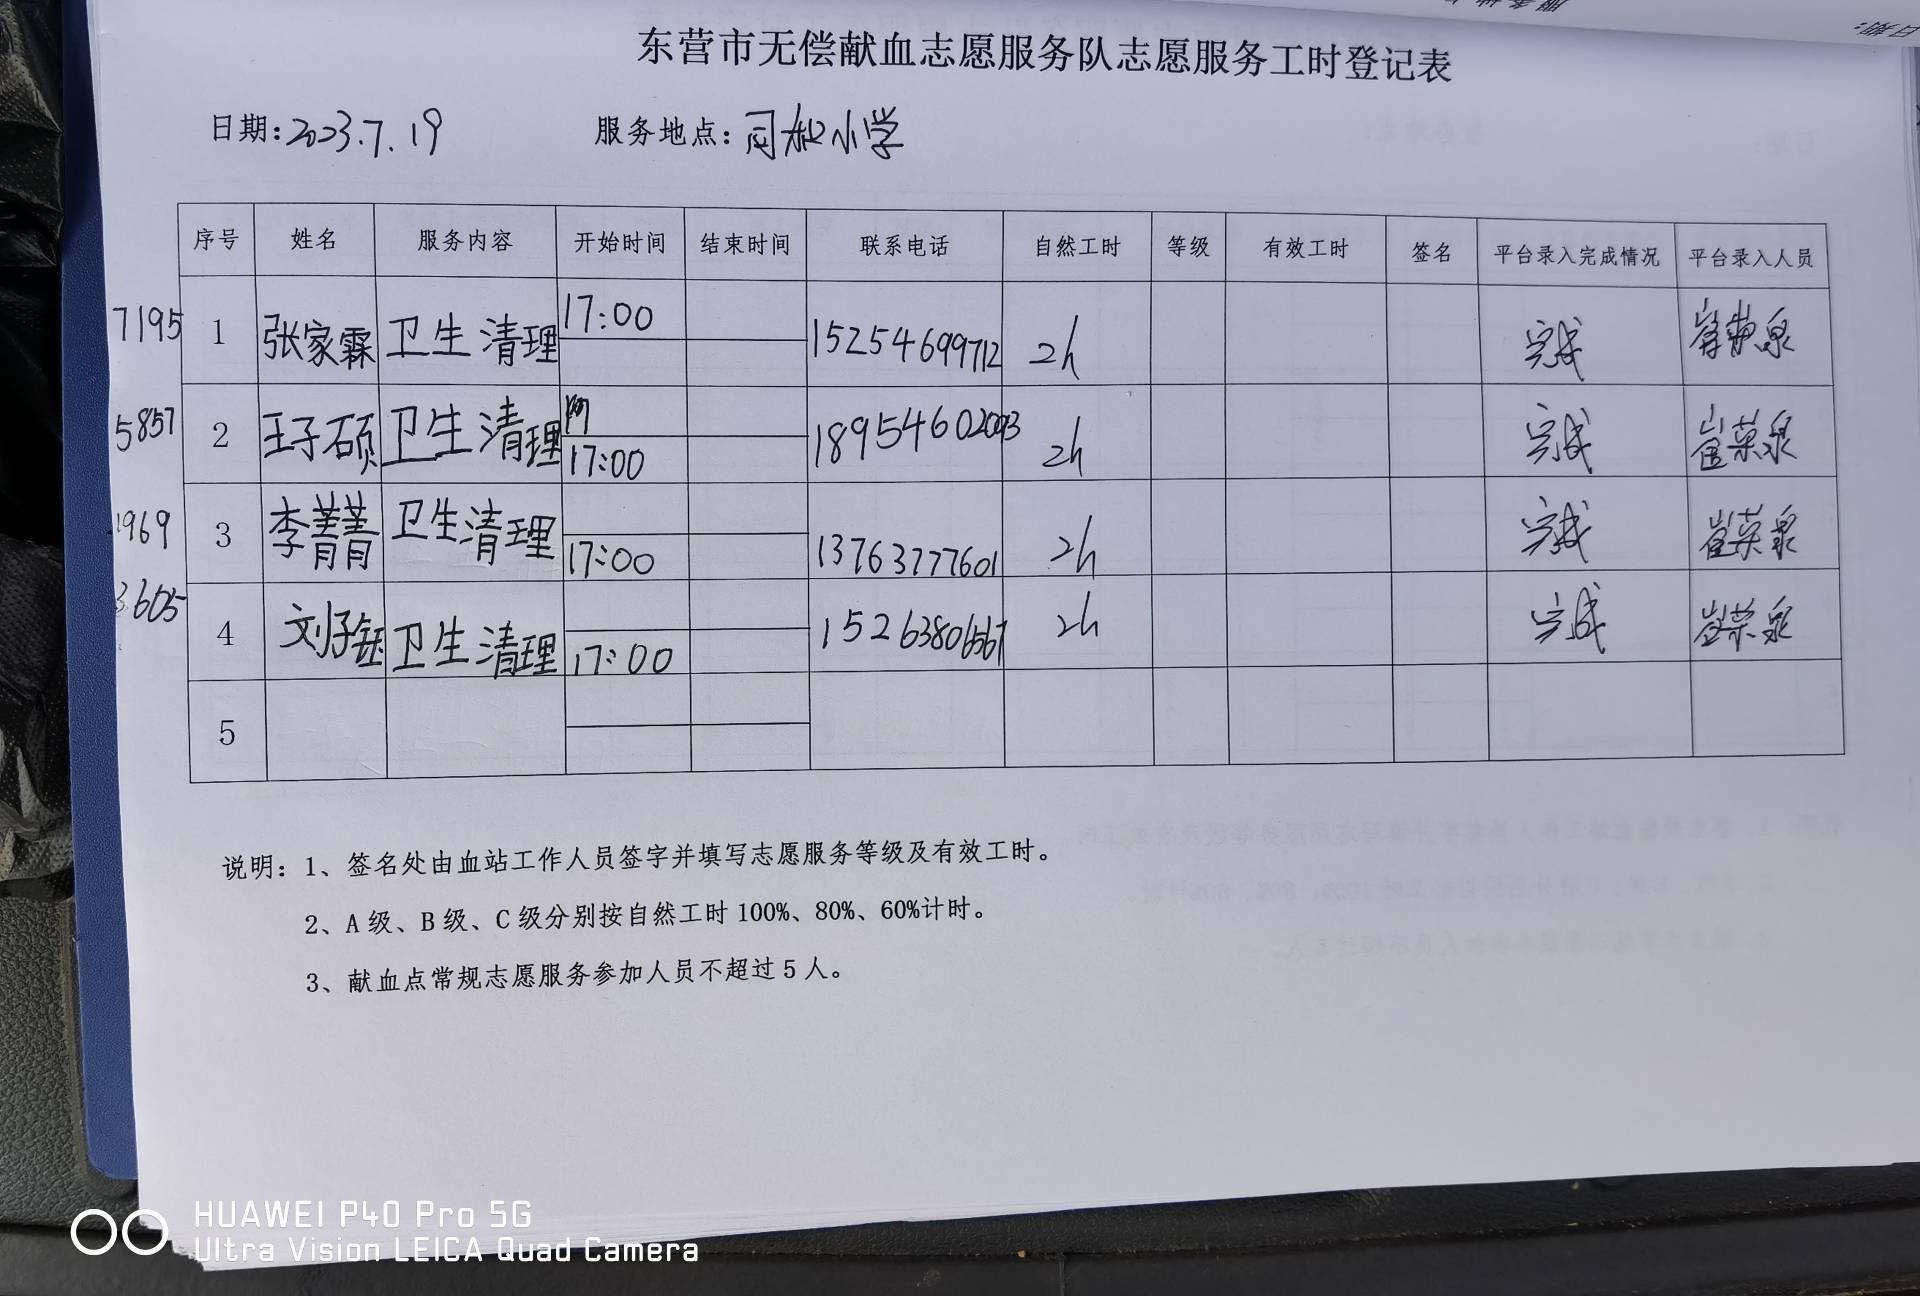 东营市无偿献血志愿服务队志愿服务工时登记表
日期:2023.7.19 服务地点:司小学
序号 姓名 服务内容 开始时间 结束时间 联系电话 自然工时 等级 有效工时 签名 平台录入完成情况 平台录入人员
7195 1 张家霖 卫生清理 17:00 15254699712 2h 完成 崔荣泉
5857 2 王子硕 卫生清理 17:00 18954602093 2h 完成 崔荣泉
1969 3 李菁菁 卫生清理 17:00 13763777601 2h 完成 崔荣泉
3605 4 刘子钰 卫生清理 17:00 15263806567 2h 完成 崔荣泉
5
说明：1、签名处由血站工作人员签字并填写志愿服务等级及有效工时。
2、A 级、B 级、C 级分别按自然工时 100%、80%、60%计时。
3、献血点常规志愿服务参加人员不超过 5 人。
HUAWEI P40 Pro 5G
Ultra Vision LEICA Quad Camera